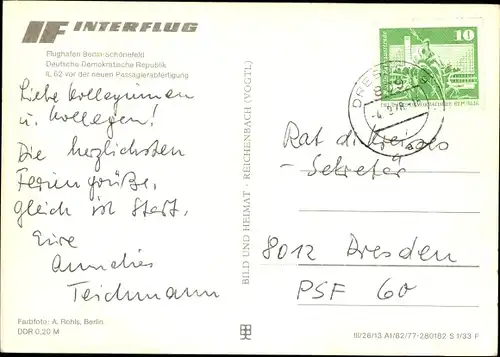 IF INTERFLUG
Flughafen Berlin-Schönefeld
Deutsche Demokratische Republik
IL 62 vor der neuen Passagierabfertigung
Liebe Kolleginnen
u. Kollegen!
Die herzlichsten
Feriengrüße,
gleich ist Start.
Eure
Annelies
Teichmann
Farbfoto: A. Rohls, Berlin
DDR 0,20 M
BILD UND HEIMAT · REICHENBACH (VOGTL)
10
DRESDEN
Rat d.
- Sekretär
8012 Dresden
PSF 60
III/26/13 A1/82/77-280182 S 1/33 F